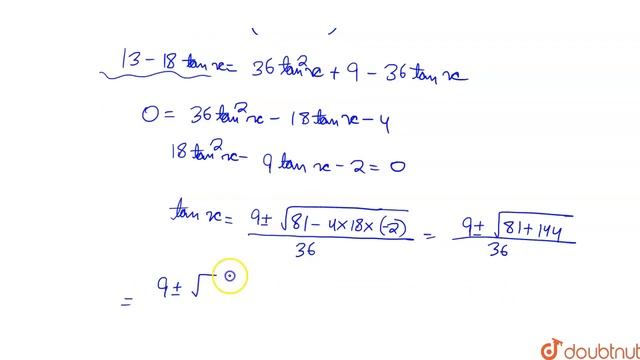 13 - 18 tan x = 36 tan²x + 9 - 36 tan x
0 = 36 tan²x - 18 tan x - 4
18 tan²x - 9 tan x - 2 = 0
tan x = (9 ± √(81 - 4×18×(-2)))/36 = (9 ± √(81 + 144))/36
= 9 ± √
doubtnut